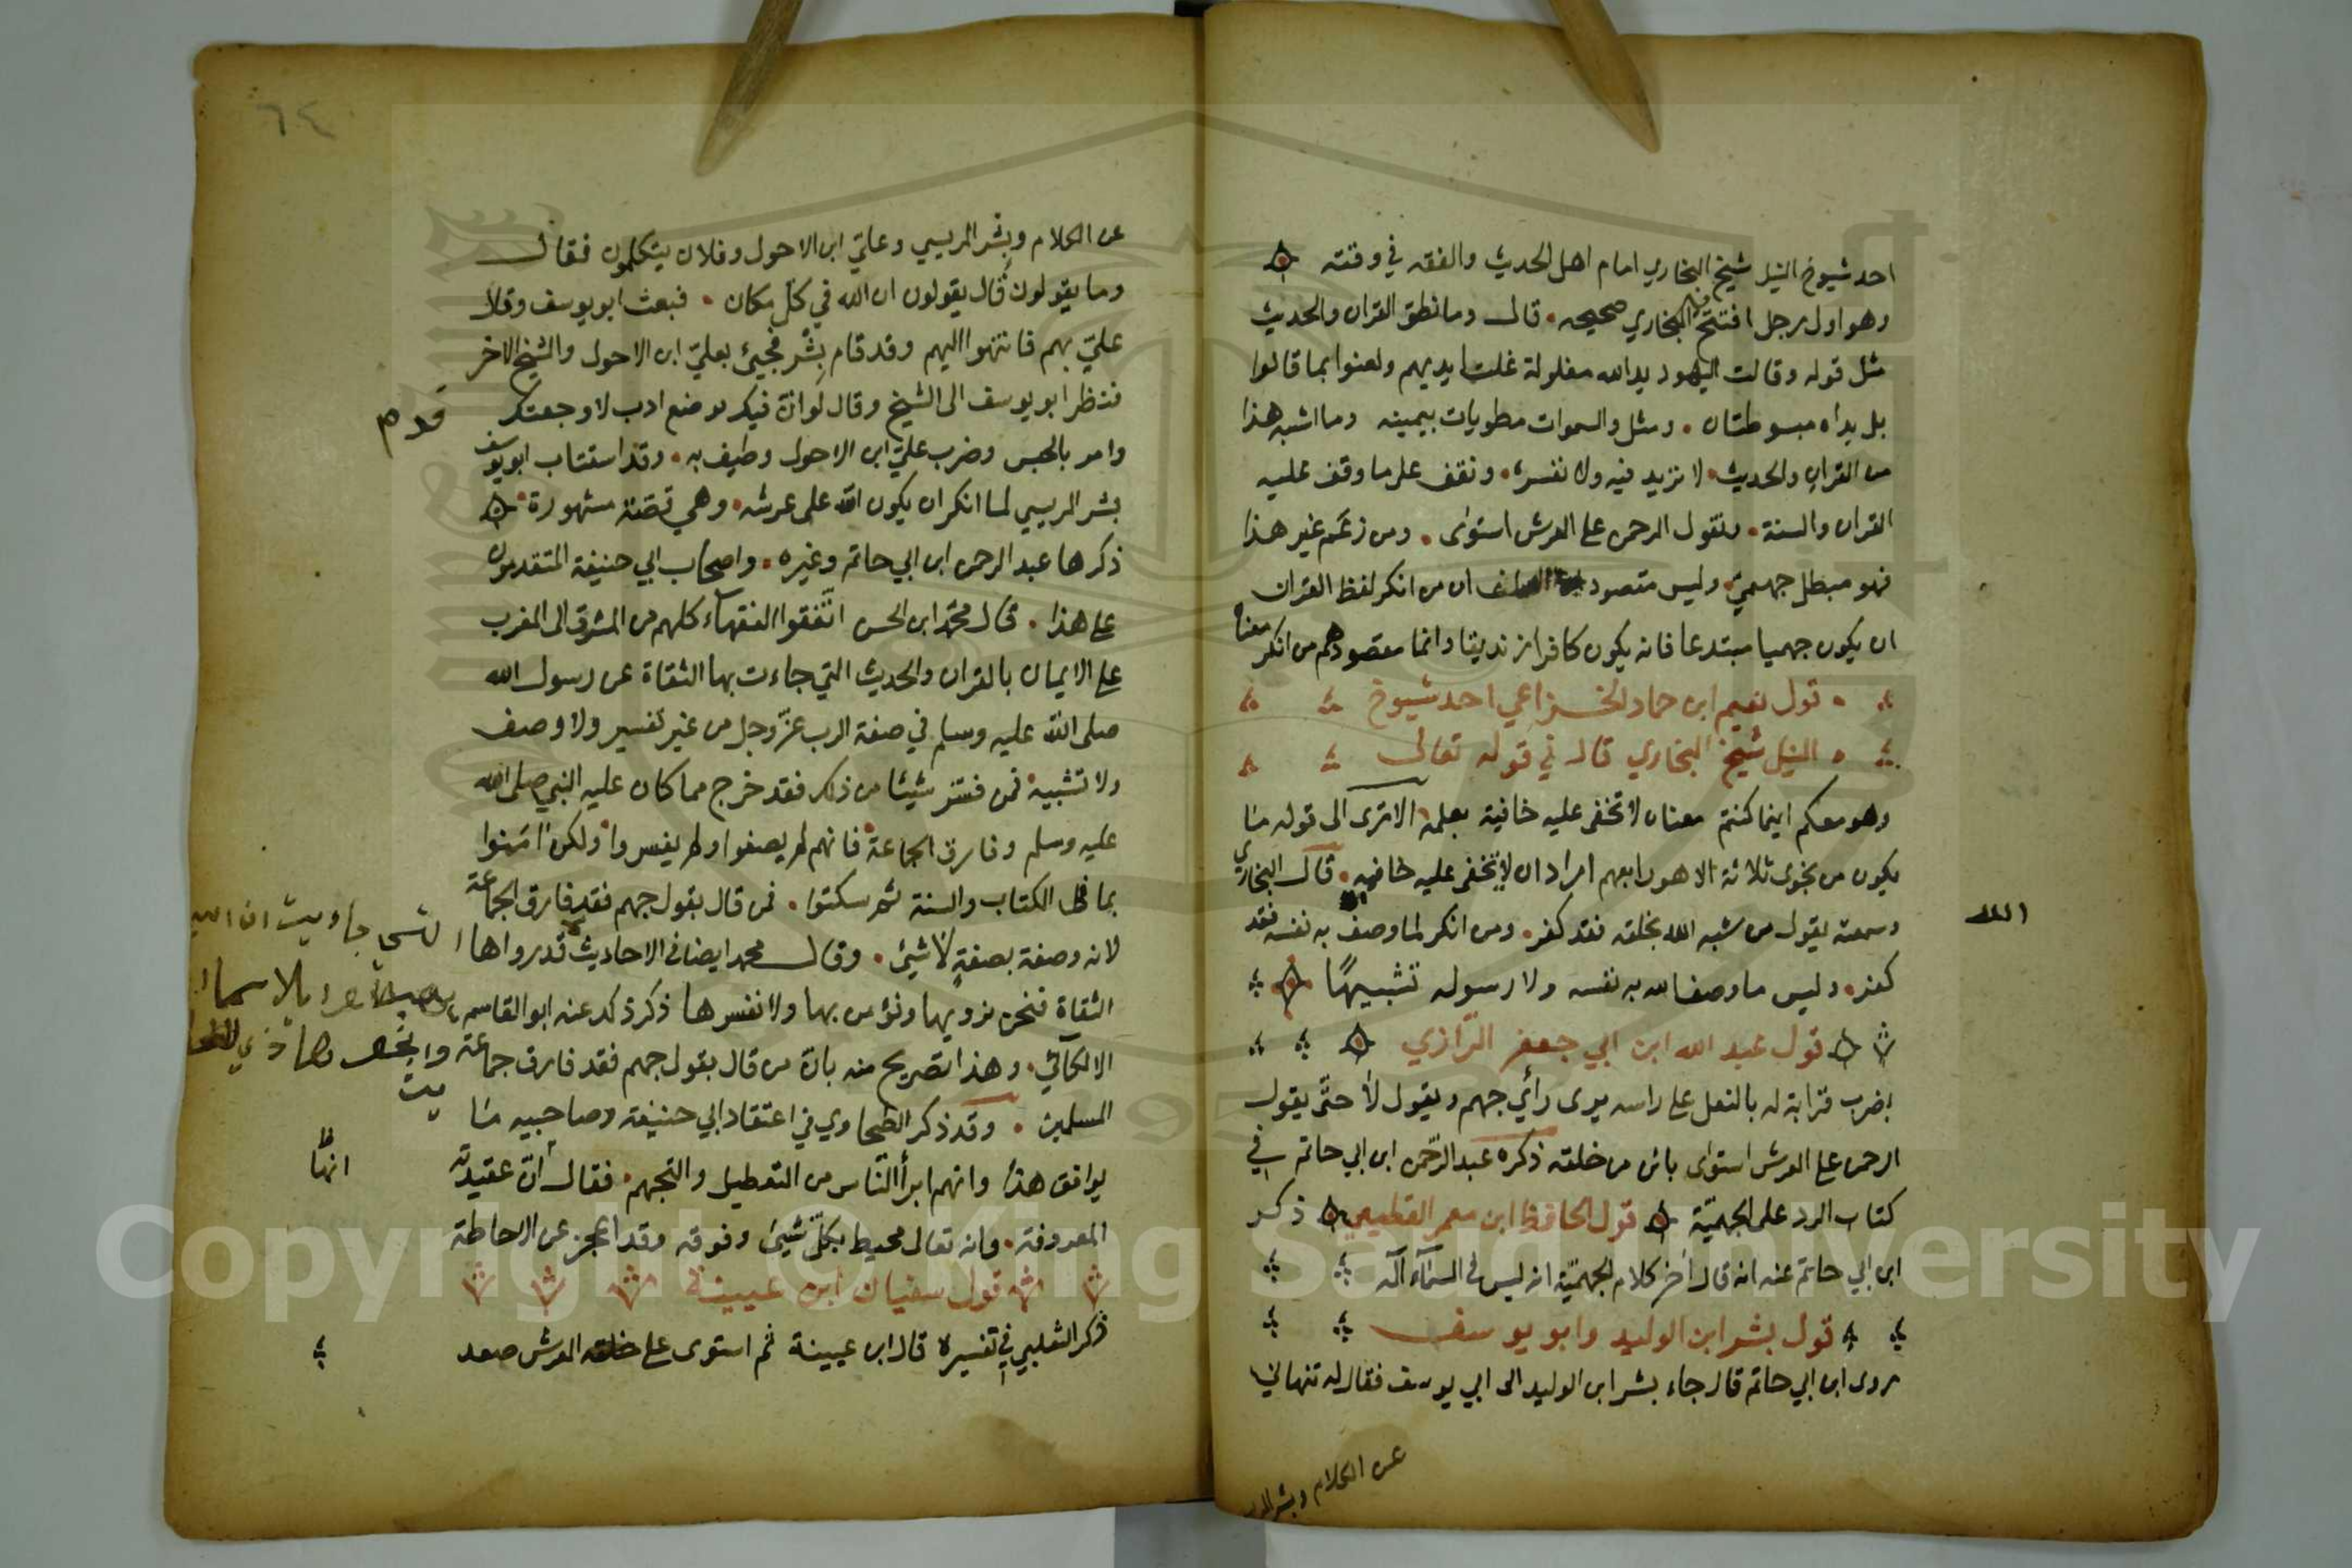 احد شيوخ النبل شيخ البخاري امام اهل الحديث والفقه في وقته
وهو اول رجل افتتح به البخاري صحيحه قال وما نطق القران والحديث
مثل قوله وقالت اليهود يد الله مغلولة غلت ايديهم ولعنوا بما قالوا
بل يداه مبسوطتان ومثل والسموات مطويات بيمينه وما اشبه هذا
من القران والحديث لا نزيد فيه ولا نفسره ونقف على ما وقف عليه
القران والسنة ونقول الرحمن على العرش استوى ومن زعم غير هذا
فهو مبطل جهمي وليس مقصود ان من انكر لفظ القران
ان يكون جهميا مبتدعا فانه يكون كافرا زنديقا وانما مقصودهم من انكر معناه
قول نعيم ابن حماد الخزاعي احد شيوخ
النبل شيخ البخاري قال في قوله تعالى
وهو معكم اينما كنتم معناه لا تخفى عليه خافية بعلمه الا ترى الى قوله ما
يكون من نجوى ثلاثة الا هو رابعهم اراد ان لا تخفى عليه خافيه قال البخاري
وسمعته يقول من شبه الله بخلقه فقد كفر ومن انكر لما وصف به نفسه فقد
الله
كفر وليس ما وصف الله به نفسه ولا رسوله تشبيها
قول عبد الله ابن ابي جعفر الرازي
يضرب قرابة له بالنعل على راسه يرى رأي جهم ويقول لا حتى يقول
الرحمن على العرش استوى بائن من خلقه ذكره عبد الرحمن ابن ابي حاتم في
كتاب الرد على الجهمية قول الحافظ ابن معمر القطيعي ذكر
ابن ابي حاتم عنه انه قال آخر كلام الجهمية انه ليس في السمآء آله
قول بشر ابن الوليد وابو يوسف
روى ابن ابي حاتم قال جاء بشر ابن الوليد الى ابي يوسف فقال له تنهاني
عن الكلام وبشر المر
٦٤
عن الكلام وبشر المريسي وعلي ابن الاحول وفلان يتكلمون فقال
وما يقولون قال يقولون ان الله في كل مكان فبعث ابو يوسف وقال
علي بهم فانتهوا اليهم وقد قام بشر فجيئ بعلي ابن الاحول والشيخ الاخر
فنظر ابو يوسف الى الشيخ وقال لو ان فيك موضع ادب لاوجعتك
وامر بالحبس وضرب علي ابن الاحول وطيف به وقد استتاب ابو يوسف
بشر المريسي لما انكر ان يكون الله على عرشه وهي قصة مشهورة
ذكرها عبد الرحمن ابن ابي حاتم وغيره واصحاب ابي حنيفة المتقدمون
على هذا قال محمد ابن الحسن اتفقوا الفقهآء كلهم من المشرق الى المغرب
على الايمان بالقران والحديث التي جاءت بها الثقاة عن رسول الله
صلى الله عليه وسلم في صفة الرب عز وجل من غير تفسير ولا وصف
ولا تشبيه فمن فسر شيئا من ذلك فقد خرج مما كان عليه النبي صلى الله
عليه وسلم وفارق الجماعة فانهم لم يصفوا ولم يفسروا ولكن امنوا
بما في الكتاب والسنة ثم سكتوا فمن قال بقول جهم فقد فارق الجماعة
لانه وصفه بصفة لا شيئ وقال محمد ايضا في الاحاديث قد رواها
الثقاة فنحن نرويها ونؤمن بها ولا نفسرها ذكر ذلك عنه ابو القاسم
الالكآئي وهذا تصريح منه بان من قال بقول جهم فقد فارق جماعة
المسلمين وقد ذكر الطحاوي في اعتقاد ابي حنيفة وصاحبيه ما
يوافق هذا وانهم ابرأ الناس من التعطيل والتجهم فقال ان عقيدته
المعروفة وانه تعالى محيط بكل شيئ وفوقه وقد اعجز عن الاحاطة
قول سفيان ابن عيينة
ذكر الثعلبي في تفسيره قال ابن عيينة ثم استوى على العرش صعد
Copyright © King Saud University